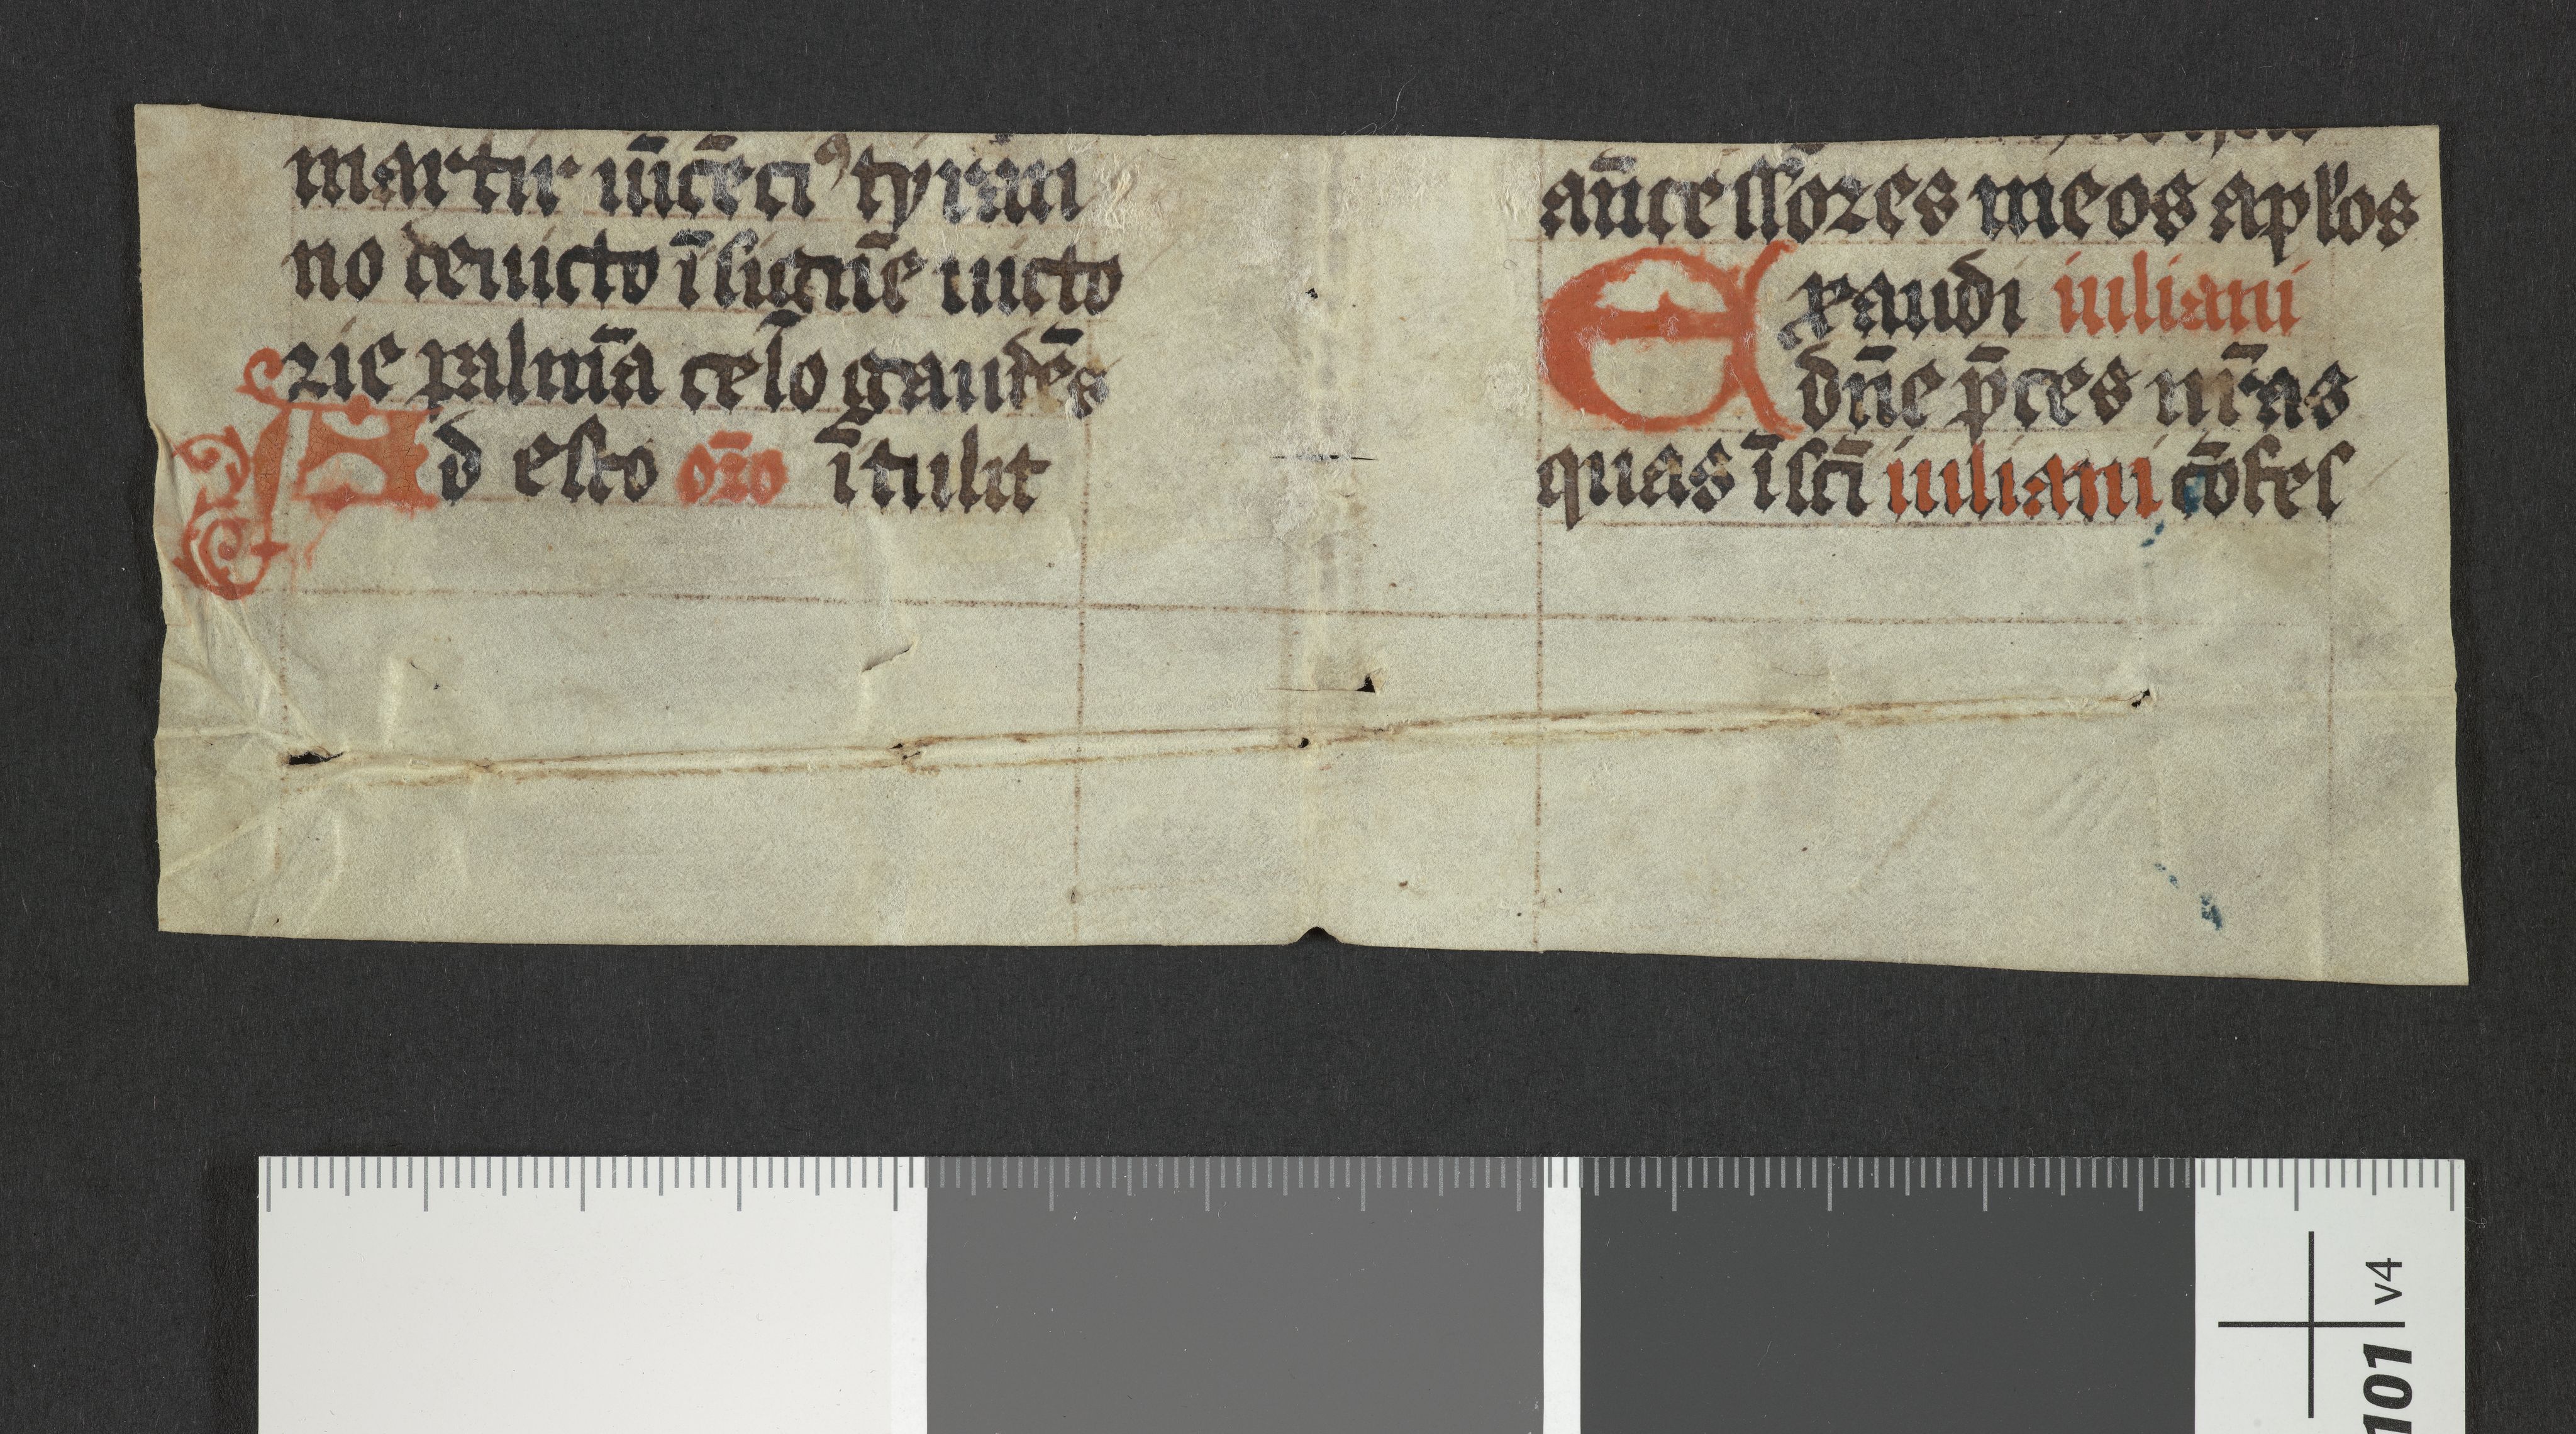 martir uīcēciꝰ tyran
no deuicto īsignē uicto
rie palmā celo gaudēs
Ad esto or̄o ītulit
an̄cessores meos apl'os
Exaudi iuliani
dn̄e p̄ces nr̄as
quas ī sc̄i iuliani cōfes
101 v4